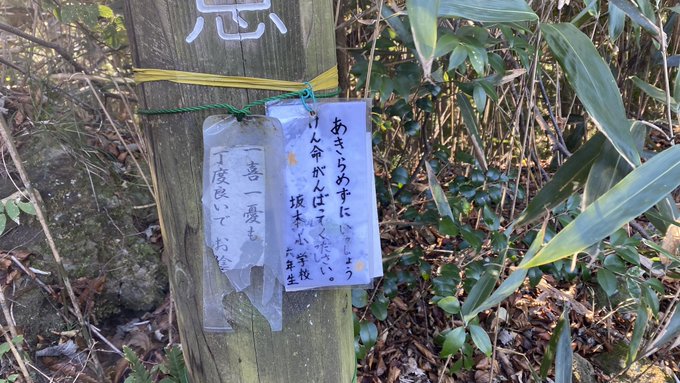 忌
あきらめずにいっしょう
けん命がんばってください。
坂本小学校
六年生
一喜一憂も
丁度良いでお陰